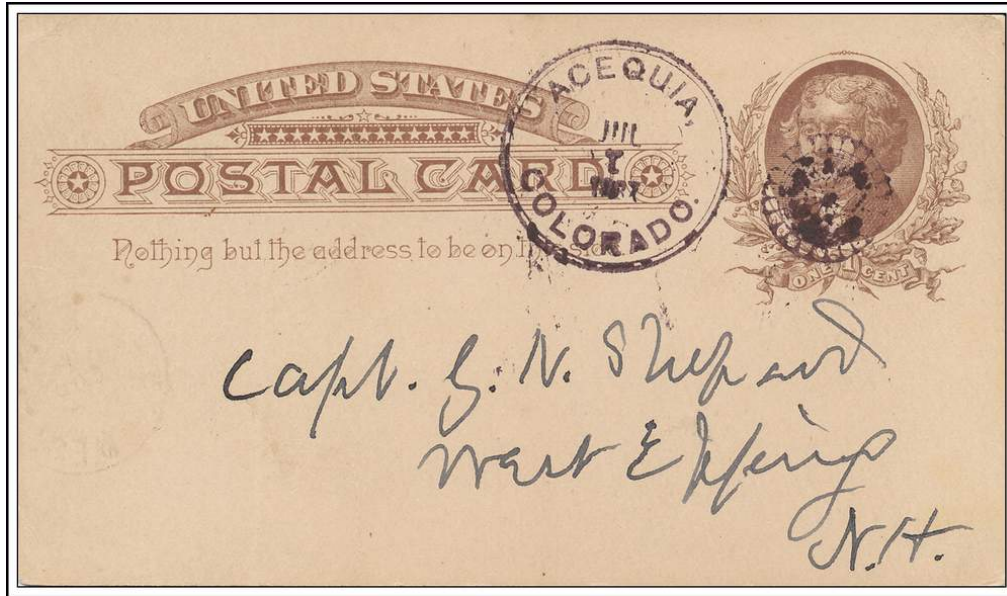 UNITED STATES
POSTAL CARD
Nothing but the address to be on this side
ACEQUIA,
JUL
7
1887
COLORADO.
ONE 1 CENT
Capt. G. N. Shepard
West Epping
N.H.